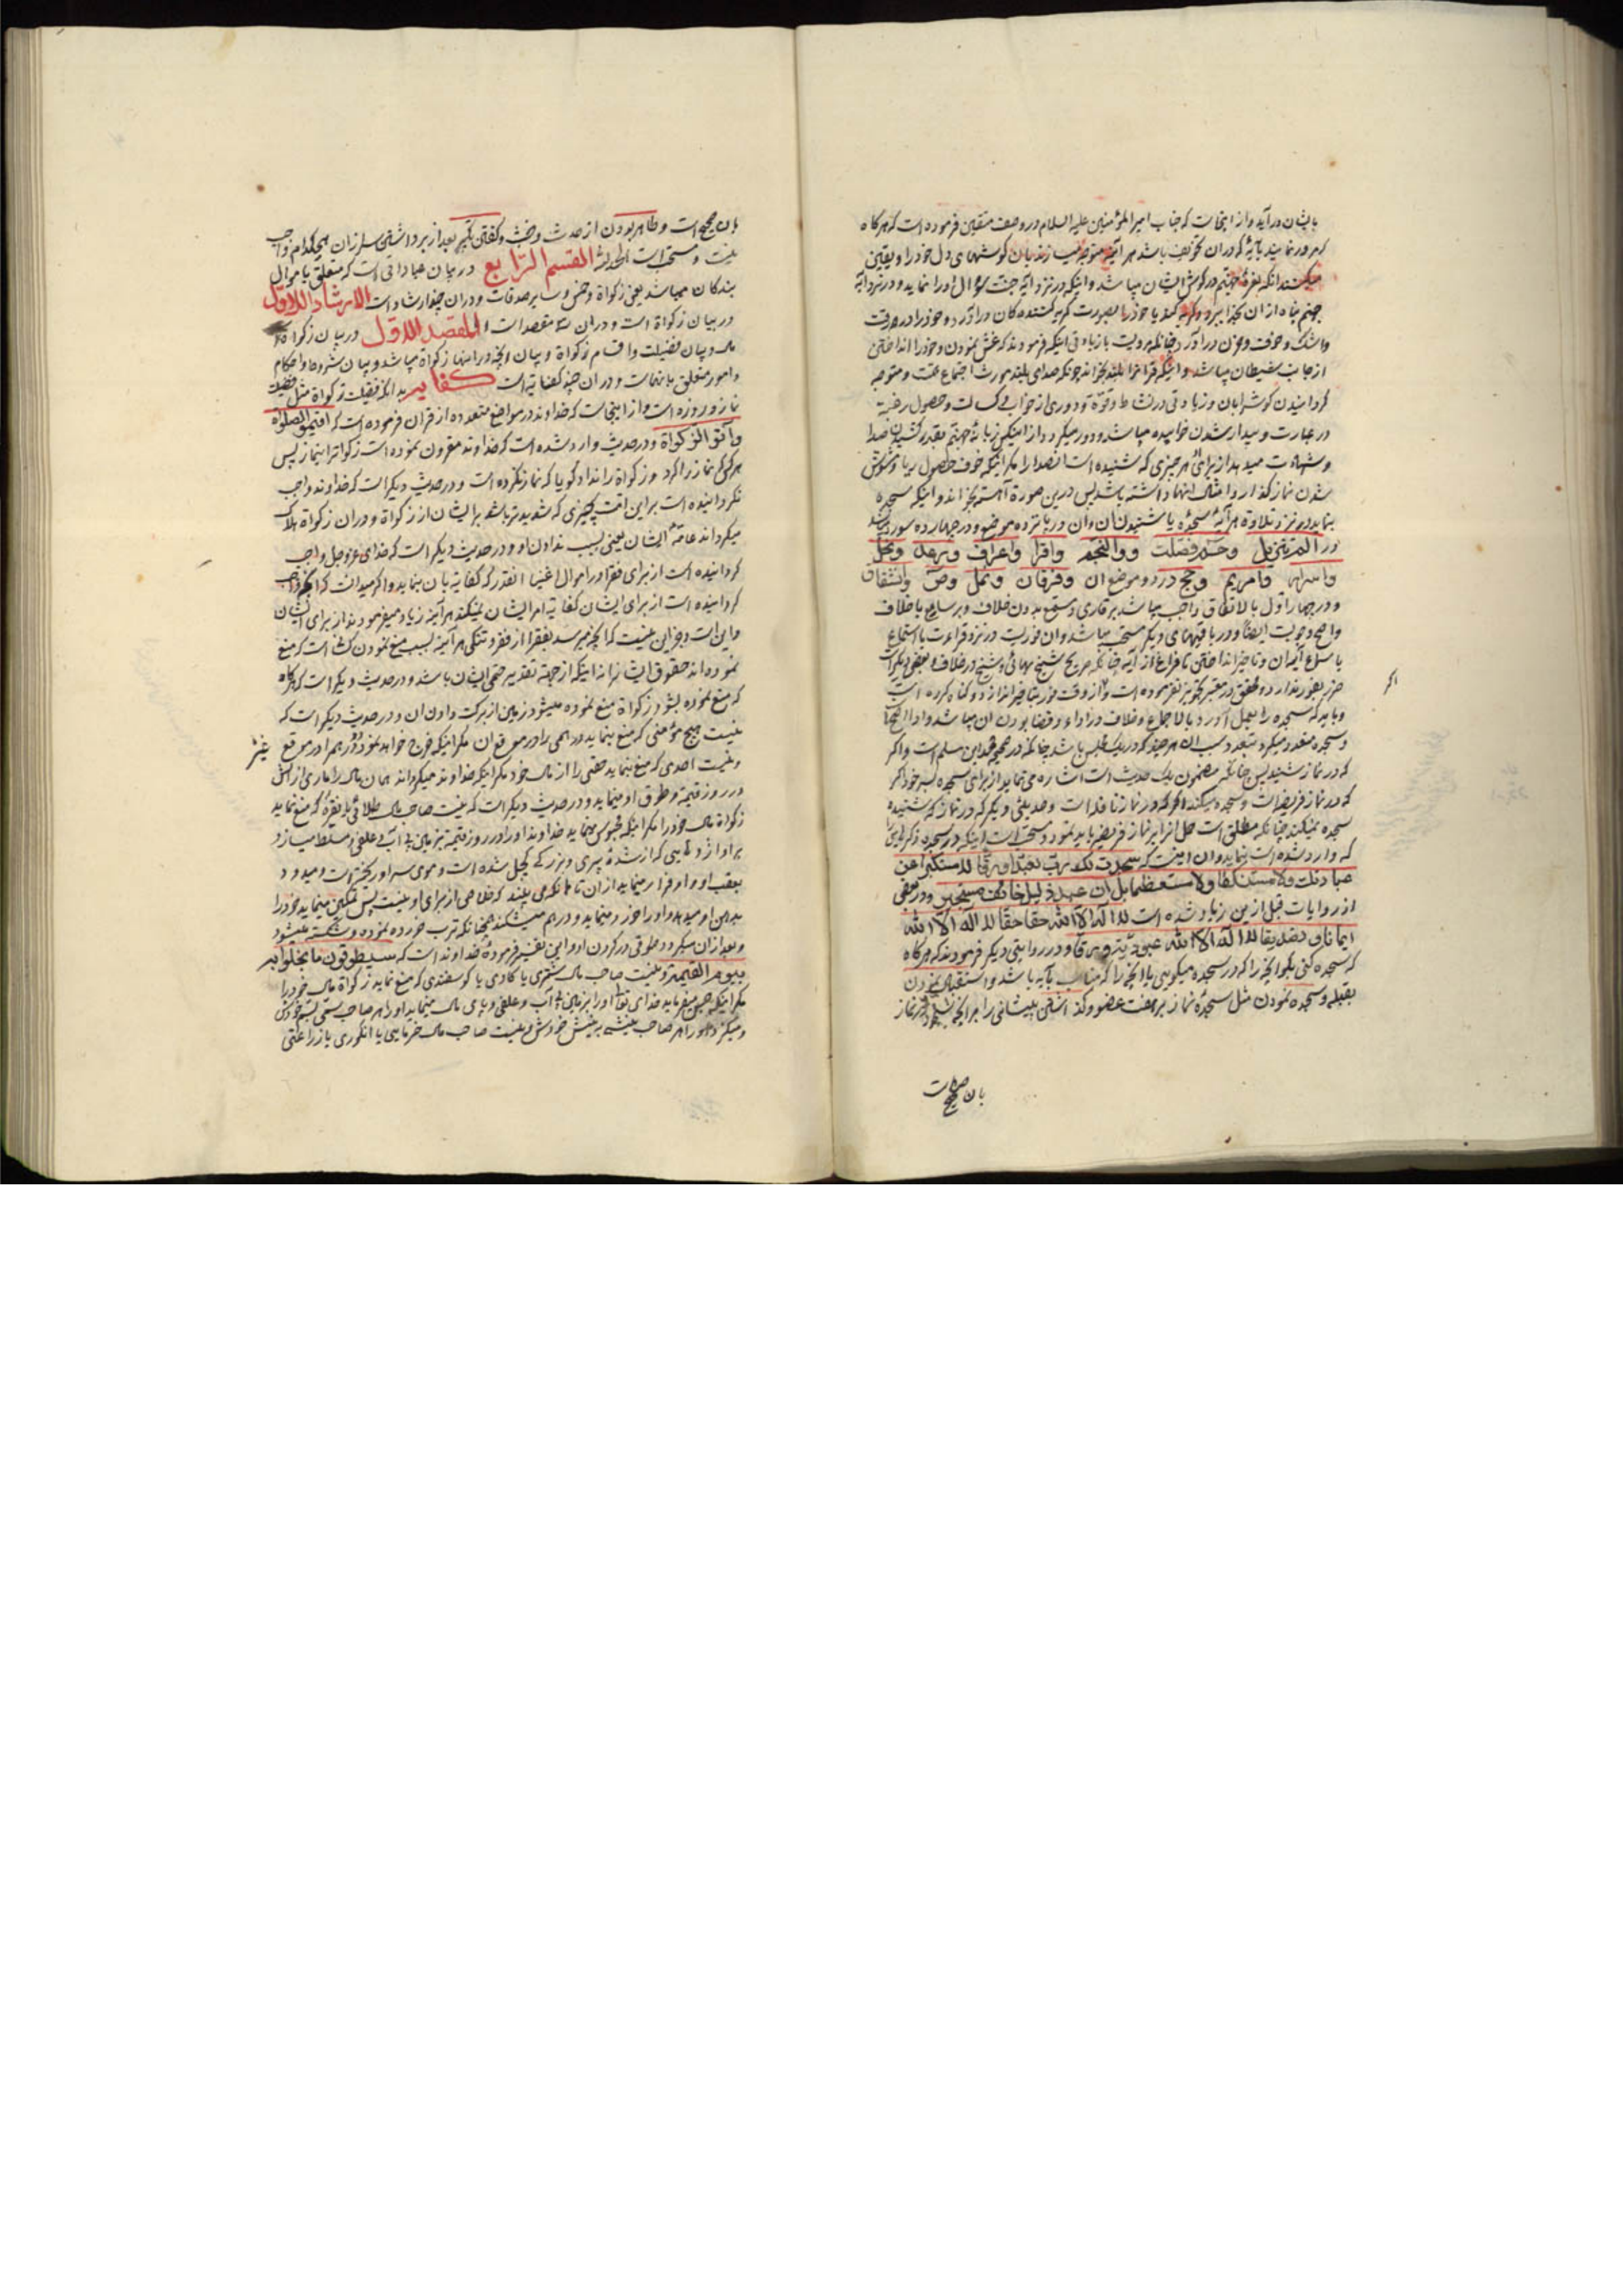 بایشان در آید و از اینجاست که جناب امیر المؤمنین علیه السلام در وصف متقین فرموده است که هرگاه
مرور نمایند بآیهٔ که در ان تخویف باشد هر آینه متوجه میسازند بان گوشهای دل خود را و یقین
میکنند انکه نفرهٔ جهنم در گوش ایشان میباشد و اینکه در نزد آیهٔ جنت سؤال اورا نماید و در نزد آیهٔ
جهنم پناه از ان بخدا ببرد و گریه کند یا خود را بصورت گریه کننده کان در آورد و خود را در رقت
و اشک و خوف و حزن در آورد چنانکه مرویست با زیادتی اینکه فرمودند که غش نمودن و خود را انداختن
از جانب شیطان میباشد و اینکه قرائترا بلند بخواند چونکه صدای بلند مورث اجتماع همّت و متوجه
گردانیدن گوش بان و زیادتی در نشاط و قوّة و دوری از خواب و کسالت و حصول رغبة
در عبارت و بیدار شدن خوابیده میباشد و دور میکردد از اینکس زبانهٔ جهنم بقدر کشیدن صدا
و شهادت میدهد از برای هر چیزی که شنیده است انصدا را مگر اینکه خوف حصول ریا و مشوش
شدن نماز گذار و امثال اینها داشته باشد پس درین صورة آهسته بخواند و اینکه سجده
بنماید در نزد تلاوة هر آیهٔ سجدهٔ یا شنیدن ان و ان در پانزده موضع و در چهارده سوره میباشد
در الم تنزیل وحم فصلت و والنجم واقرأ واعراف ورعد ونحل
واسری ومریم وحج در دو موضع ان وفرقان ونمل وص وانشقاق
و در چهار اوّل بالاتفاق واجب میباشد بر قاری و مستمع بدون خلاف و بر سامع با خلاف
واضح وجوبست ایضا و در باقیهای دیگر مستحب میباشد و ان فوریست در نزد قرائت یا استماع
یا سماع آیهٔ ان و تاخیر انداختن تا فراغ از آیه چنانکه صریح شیخ بهائی و شیخ در خلاف و بعضی دیگر است
ضرر بفور ندارد و محقق در معتبر تجویز نفرموده است و اگر از وقت فور بتاخیر اندازد گناه کرده است
و باید که سجده را بعمل آورد بالاجماع و خلاف در اداء و قضا بودن ان میباشد و ادا ارجح است
و سجده متعدد میگردد بتعدد سبب ان هر چند که در یک مجلس باشد چنانکه در صحیح محمد بن مسلم است و اگر
که در نماز شنید پس چنانکه مضمون یک حدیث است اشاره می نماید از برای سجده بسر خود اگر
که در نماز فریضه است و سجده میکند اگر که در نماز نافله است و حدیثی دیگر که در نماز که شنیده
سجده نمیکند چنانکه مطلق است حمل انرا بر نماز فریضه باید نمود و مستحب است اینکه در سجده ذکر این را
که وارد شده است بنماید و ان اینست که سجدت لک یا رب تعبدا ورقا لا مستکبرا عن
عبادتک ولا مستنکفا ولا مستعظما بل انا عبد ذلیل خائف مستجیر و در بعضی
از روایات قبل ازین زیاد شده است لا اله الا الله حقا حقا لا اله الا الله
ایمانا وتصدیقا لا اله الا الله عبودیة ورقا و در روایتی دیگر فرمودند که هرگاه
که سجده کنی بگو انچه را که در سجده میکویی یا انچه را که مناسب بآیه باشد و استقبال نمودن
بقبله و سجده نمودن مثل سجدهٔ نماز بر هفت عضو و گذاشتن پیشانی را بر انچه سجود در نماز
بان صحیح است
بان صحیح است و طاهر بودن از حدث و خبث و گفتن تکبیر بعد از برداشتن سر از ان هیچکدام واجب
نیست و مستحب است الحمد لله القسم الرابع در بیان عباداتی است که متعلق باموال
بندگان میباشد یعنی زکواة و خمس و سایر صدقات و در ان چهار ارشاد است الارشاد الاوّل
در بیان زکواة است و در ان سه مقصد است المقصد الاوّل در بیان زکواة
مال و بیان فضیلت و اقسام زکواة و بیان انچه در انها زکواة میباشد و بیان شروط و احکام
و امور متعلق بانهاست و در ان چند کفایه است کفایه بدانکه فضیلت زکواة مثل فضیلت
نماز و روزه است و از اینجاست که خداوند در مواضع متعدده از قران فرموده است که اقیموا الصلوة
وآتوا الزکواة و در حدیث وارد شده است که خداوند مقرون نموده است زکواة را بنماز پس
هر که نماز را کرد و زکواة را نداد گویا که نماز نکرده است و در حدیث دیگر است که خداوند واجب
نگردانیده است بر این امّت چیزی که شدیدتر باشد بر ایشان از زکواة و در ان زکواة هلاک
میگرداند عامّهٔ ایشان یعنی بسبب ندادن او و در حدیث دیگر است که خدای عز و جل واجب
گردانیده است از برای فقرا در اموال اغنیا انقدر که کفایة بان بنماید و اگر میدانست که انچه واجب
گردانیده است از برای ایشان کفایة امر ایشان نمیکند هر آینه زیاد میفرمودند از برای ایشان
و این است و جز این نیست که انچه میرسد بفقرا از فقر و تنگی هر آینه بسبب منع نمودن کسانی است که منع
نموده اند حقوق ایشانرا نه اینکه از جهة تقدیر حق ایشان باشد و در حدیث دیگر است که هرگاه
که منع نموده بشود زکواة منع نموده میشود زمین از برکت دادن ان و در حدیث دیگر است که
نیست هیچ مؤمنی که منع بنماید درهمی را در موقع ان مگر اینکه خرج خواهد نمود دو درهم را در موقع غیر
و نیست احدی که منع بنماید حقی را از مال خود مگر اینکه خداوند میگرداند همان مال را ماری از اتش
در روز قیمة و طوق او مینماید و در حدیث دیگر است که نیست صاحب مال طلائی یا نقرهٔ که منع نماید
زکواة مال خود را مگر اینکه محبوس مینماید خداوند او را در روز قیمة بزمین بی آب و علفی و مسلط میسازد
بر او اژدهایی که از شدهٔ پیری و بزرگی کچل شده است و موی سر او ریخته است و میدود
بعقب او و او فرار مینماید از ان تا انکه می بیند که خلاصی از برای او نیست پس تمکین مینماید خود را
بدهن او میدهد و او را خورد مینماید و در هم میشکند همچنانکه ترب خورده نموده و شکسته میشود
و بعد از ان میگردد طوقی در گردن او و این تفسیر فرمودهٔ خداوند است که سیطوقون ما بخلوا به
یوم القیمة و نیست صاحب مال شتری یا گاوی یا گوسفندی که منع نماید زکواة مال خود را
مگر اینکه حبس میفرماید خدای تعالی او را بزمین بی آب و علفی و پای مال مینماید او را هر صاحب سمّی بسمّ خودش
و میگزد او را هر صاحب نیشی به نیش خودش و نیست صاحب مال خرمایی یا انگوری یا زراعتی